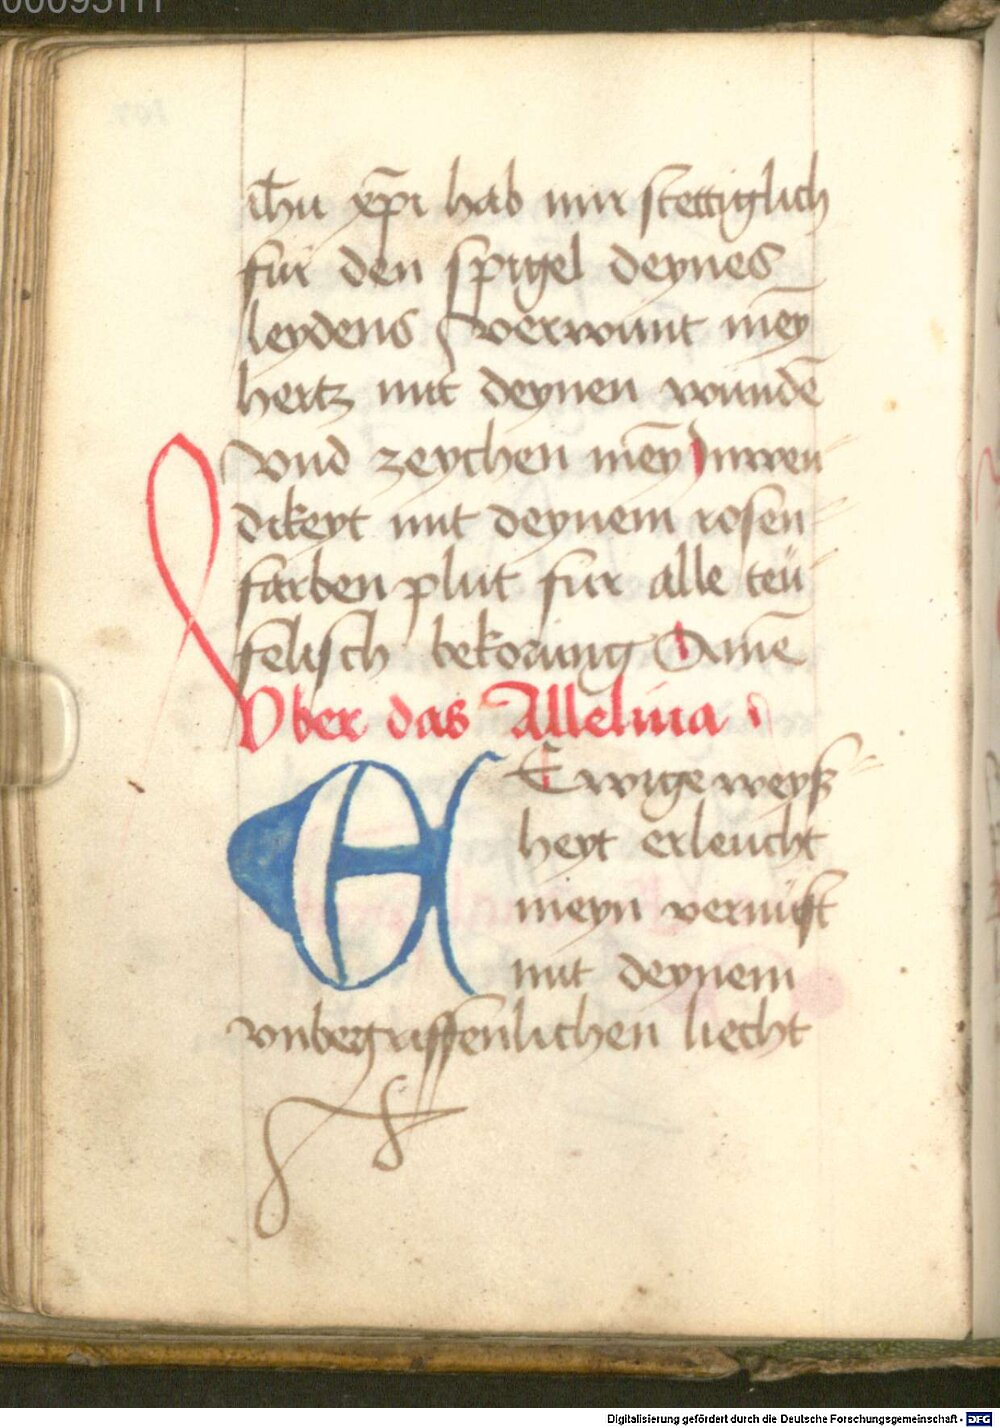 ih̄u xp̄i hab mir stettiglich
für den spigel deynes
leydens verwunt mēy
hertz mit deynen wundē
vnd zeychen mēy Inwen
dikeyt mit deynem rosen
farben plut fur alle teü
felisch bekorung Amē
Vber das Alleluia
EEwige weyß
heyt erleucht
meyn vernūft
mit deynem
vnbegriffenlichen liecht
Digitalisierung gefördert durch die Deutsche Forschungsgemeinschaft - DFG